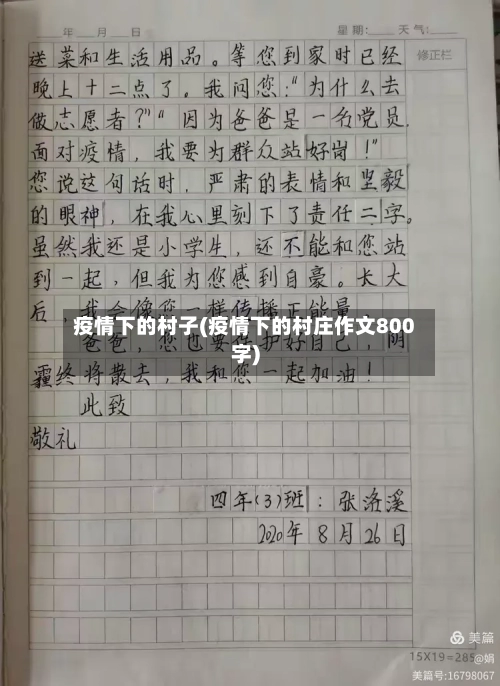 年 月 日 星期: 天气:
修正栏
送菜和生活用品。等您到家时已经
晚上十二点了。我问您:“为什么去
做志愿者?”“因为爸爸是一名党员,
面对疫情,我要为群众站好岗!”
您说这句话时,严肃的表情和坚毅
的眼神,在我心里刻下了责任二字。
虽然我还是小学生,还不能和您站
到一起,但我为您感到自豪。长大
后,我会像您一样传播正能量。
疫情下的村子(疫情下的村庄作文800
字)
爸爸,您也要保护好自己,阴
霾终将散去,我和您一起加油!
此致
敬礼
四年(3)班:张洛溪
2020年8月26日
美篇
15X19=285
@娟
美篇号:16798067